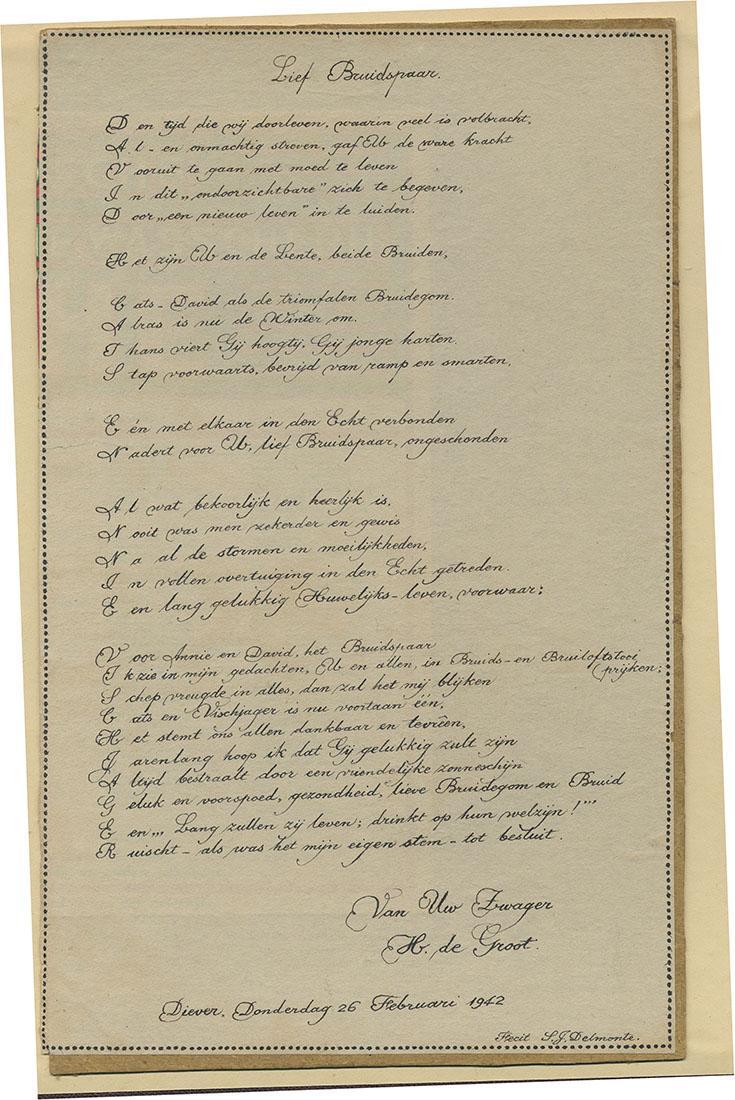 Lief Bruidspaar.
D en tijd die wij doorleven, waarin veel is volbracht,
A l - en onmachtig streven, gaf U de ware kracht
V ooruit te gaan met moed te leven
I n dit „ondoorzichtbare" zich te begeven,
D oor „een nieuw leven" in te luiden.
H et zijn U en de Lente, beide Bruiden,
C ats - David als de triomfalen Bruidegom.
A lras is nu de Winter om.
T hans viert Gij hoogtij, Gij jonge harten.
S tap voorwaarts, bevrijd van ramp en smarten,
E én met elkaar in den Echt verbonden
N adert voor U, lief Bruidspaar, ongeschonden
A l wat bekoorlijk en heerlijk is,
N ooit was men zekerder en gewis
N a al de stormen en moeilijkheden,
I n vollen overtuiging in den Echt getreden.
E en lang gelukkig Huwelijks-leven, voorwaar;
V oor Annie en David, het Bruidspaar
I k zie in mijn gedachten, U en allen, in Bruids- en Bruiloftstooi
prijken;
S chep vreugde in alles, dan zal het mij blijken
C ats en Vischjager is nu voortaan één,
H et stemt ons allen dankbaar en tevreên,
J arenlang hoop ik dat Gij gelukkig zult zijn
A ltijd bestraalt door een vriendelijke zonneschijn
G eluk en voorspoed, gezondheid, lieve Bruidegom en Bruid
E en „, Lang zullen zij leven; drinkt op hun welzijn!"'
R uischt - als was het mijn eigen stem - tot besluit.
Van Uw Zwager
H. de Groot.
Diever, Donderdag 26 Februari 1942
Fecit S.J. Delmonte.